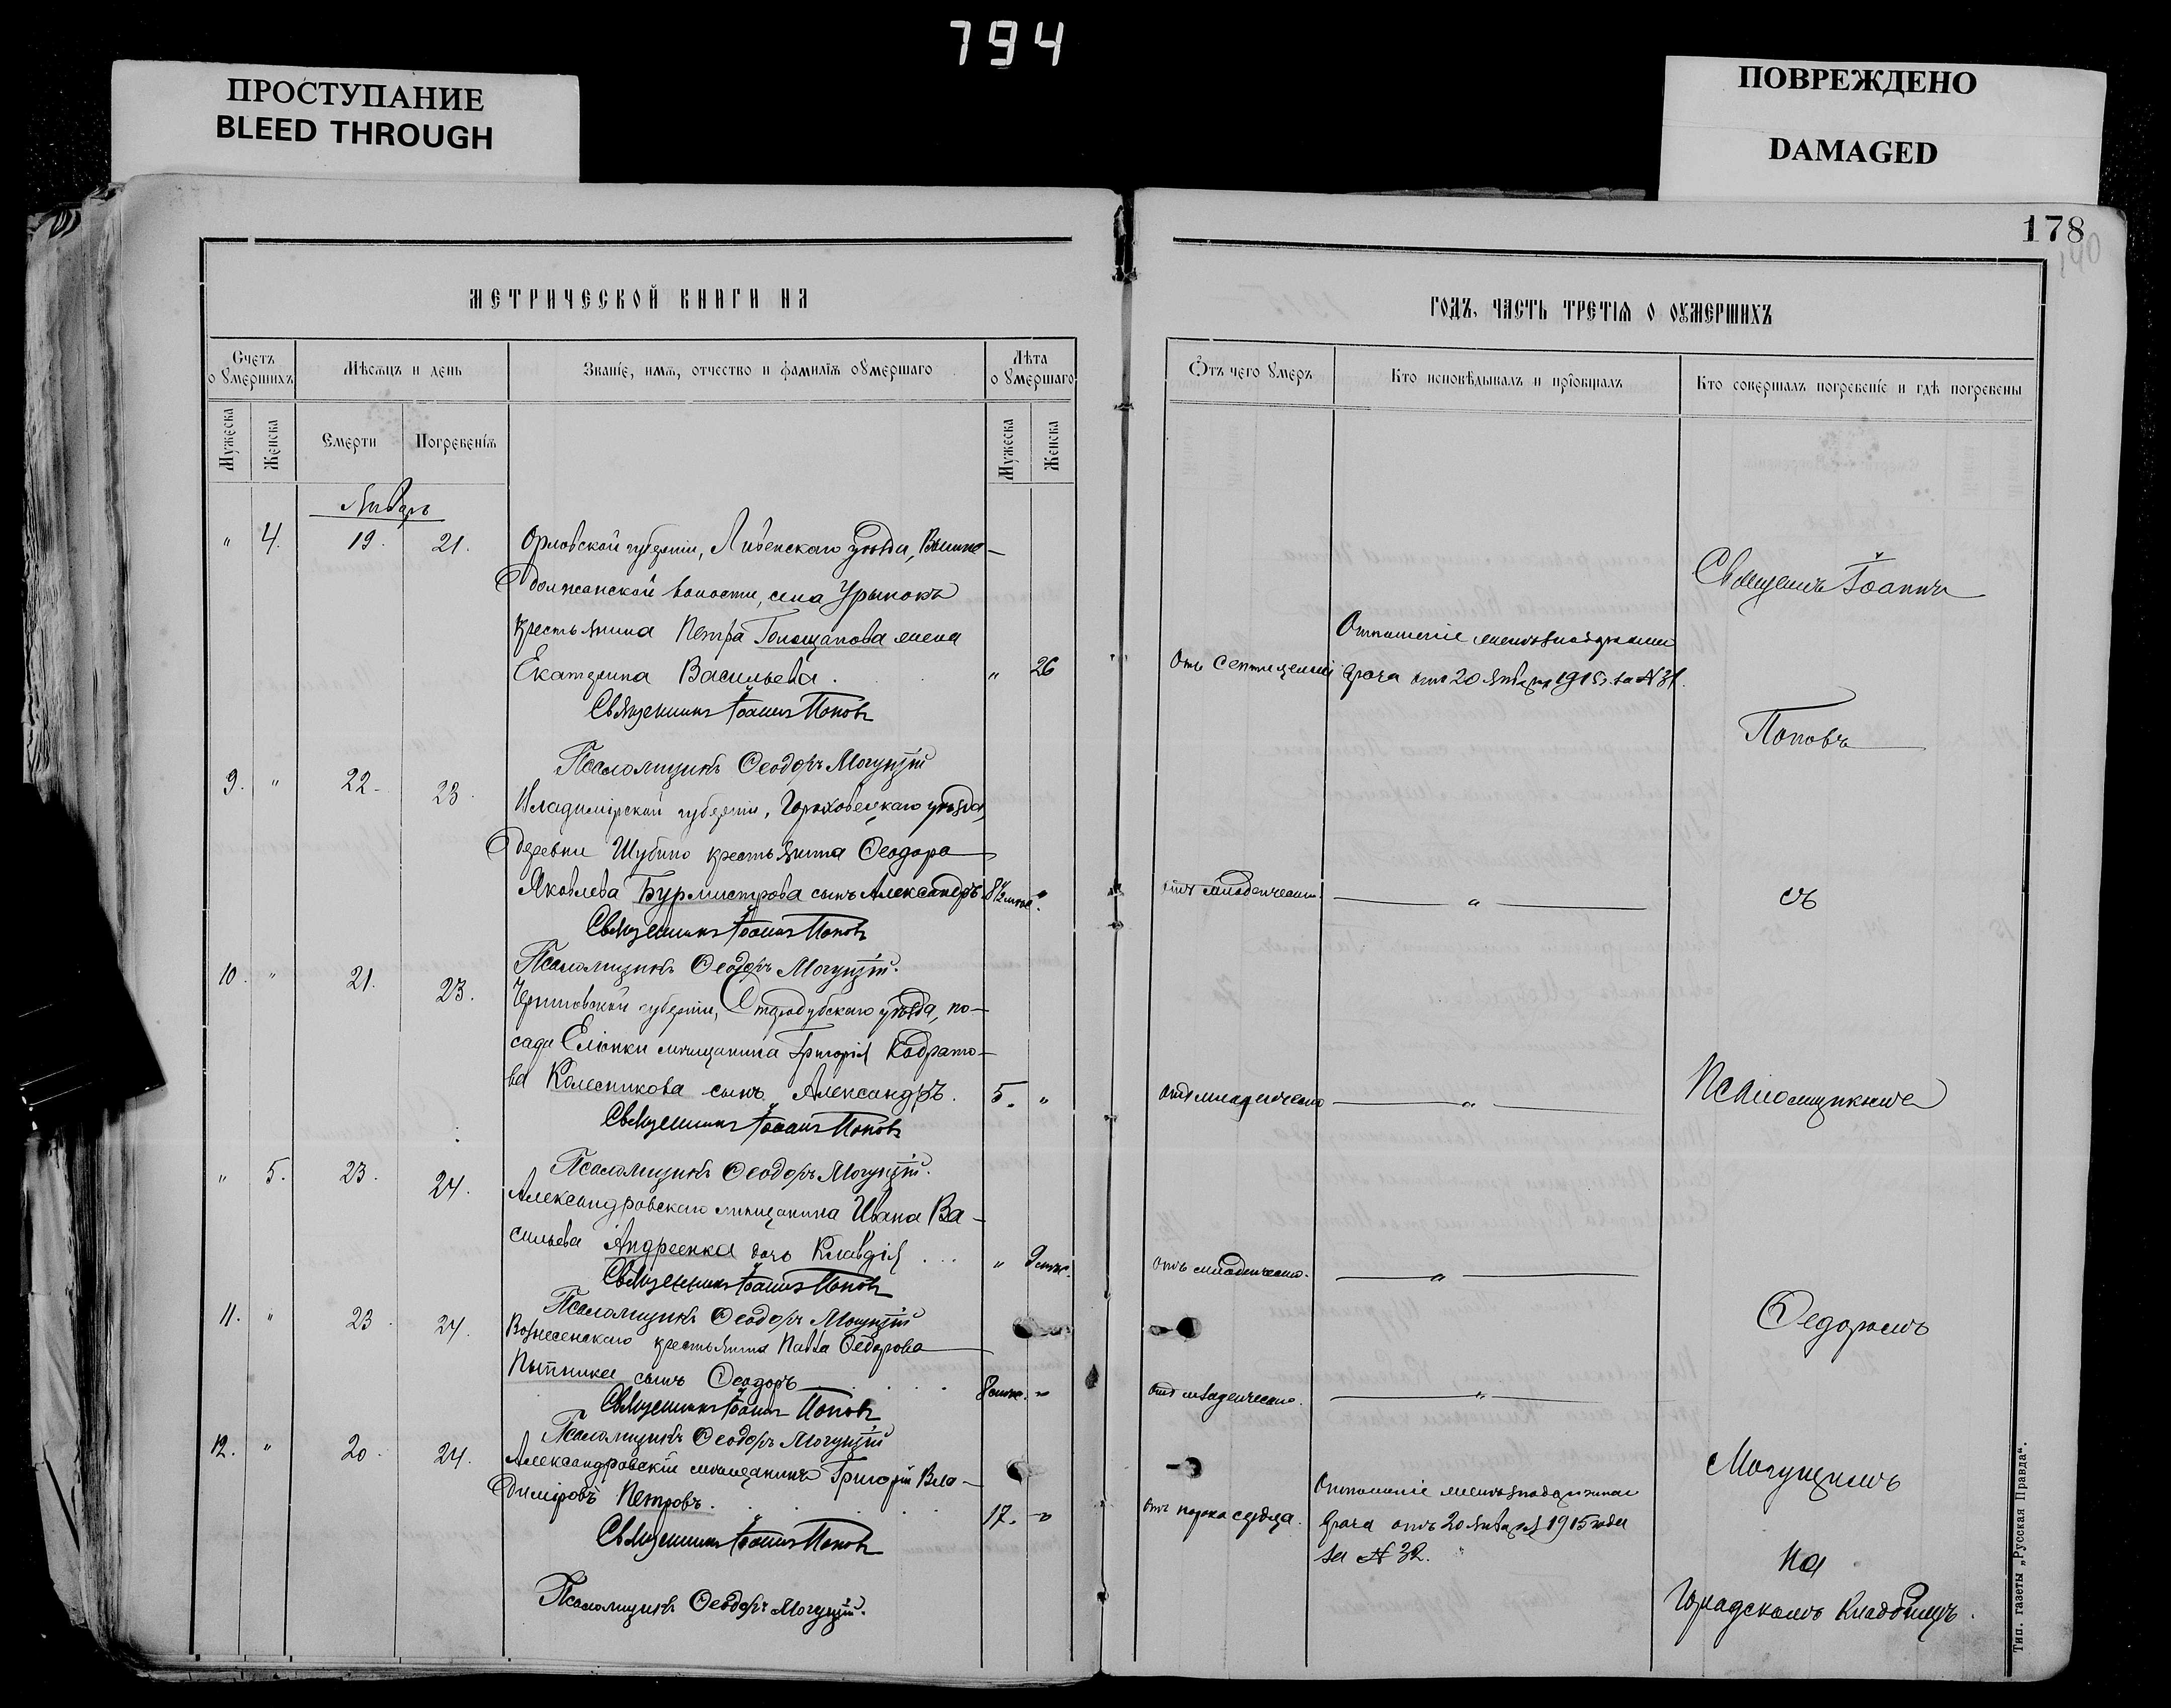 794
ПРОСТУПАНИЕ
BLEED THROUGH
ПОВРЕЖДЕНО
DAMAGED
178
140
МЕТРИЧЕСКОЙ КНИГИ НА
ГОДЪ, ЧАСТЬ ТРЕТІЯ О ОУМЕРШИХЪ
Счетъ оумершихъ
Мѣсяцъ и день
Званіе, имя, отчество и фамилія оумершаго
Лѣта оумершаго
Мужеска
Женска
Смерти
Погребенія
Мужеска
Женска
Отъ чего умеръ
Кто исповѣдывалъ и пріобщалъ
Кто совершалъ погребеніе и гдѣ погребены
Январь
" 4. 19. 21. Орловской губерніи, Ливенскаго уѣзда,
должанской волости, села Урынокъ
крестьянина Петра Голощапова жена
Екатерина Васильева. " 26
Священникъ Іоаннъ Поповъ
Псаломщикъ Ѳеодоръ Могущій
9. " 22. 23. Владимірской губерніи, Гороховецкаго уѣзда,
деревни Шубино крестьянина Ѳеодора
Яковлева Бурмистрова сынъ Александръ 8½ мѣс. "
Священникъ Іоаннъ Поповъ
Псаломщикъ Ѳеодоръ Могущій.
10. " 21. 23. Черниговской губерніи, Стародубскаго уѣзда, по-
сада Еліонки мѣщанина Григорія Кодрато-
ва Колесникова сынъ Александръ. 5. "
Священникъ Іоаннъ Поповъ
Псаломщикъ Ѳеодоръ Могущій.
" 5. 23. 24. Александровскаго мѣщанина Ивана Ва-
сильева Андреенка дочь Клавдія " 9 мѣс.
Священникъ Іоаннъ Поповъ
Псаломщикъ Ѳеодоръ Могущій
11. " 23. 24. Вознесенскаго крестьянина Павла Ѳедорова
сынъ Ѳеодоръ 8 "
Священникъ Іоаннъ Поповъ
Псаломщикъ Ѳеодоръ Могущій
12. " 20. 24. Александровскій мѣщанинъ Григорій Вла-
диміровъ Петровъ. 17. "
Священникъ Іоаннъ Поповъ
Псаломщикъ Ѳеодоръ Могущій.
Отъ
Отношеніе
врача отъ 20 января 1915 г. за № 31.
отъ младенческой. "
отъ младенческой "
отъ младенческой. "
отъ младенческой. "
отъ порока сердца.
Отношеніе
врача отъ 20 января 1915 года
за № 32.
Священникъ Іоаннъ
Поповъ
съ
Псаломщикомъ
Ѳедоромъ
Могущимъ
на
Городскомъ кладбищѣ.
Тип. газеты „Русская Правда“.